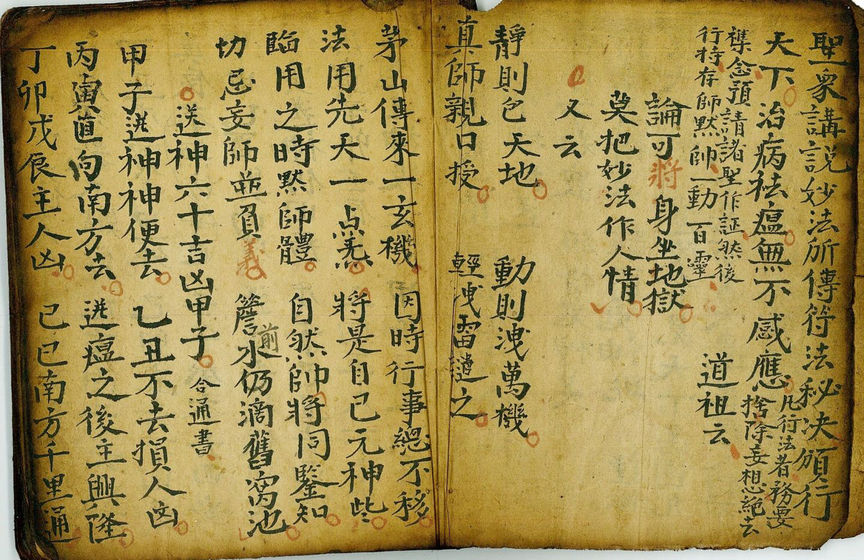 聖衆講説妙法所傳符法秘决頒行
天下治病祛瘟無不感應凡行法者務要捨除妄想絶去
襍念預請諸聖作証然後
行持存師黙帥一動百靈
道祖云
論可將身坐地獄
莫把妙法作人情
又云
靜則包天地 動則洩萬機
真師親口授 輕洩雷譴之
茅山傳來一玄機 因時行事總不移
法用先天一点炁 將是自己元神些
臨用之時黙師體 自然帥將同鑒知
切忌妄師並負義 簷前水仍滴舊窩池
送神六十吉凶甲子 合通書
甲子送神神便去 乙丑不去損人凶
丙寅直向南方去 送瘟之後主興隆
丁卯戊辰主人凶 己巳南方千里通